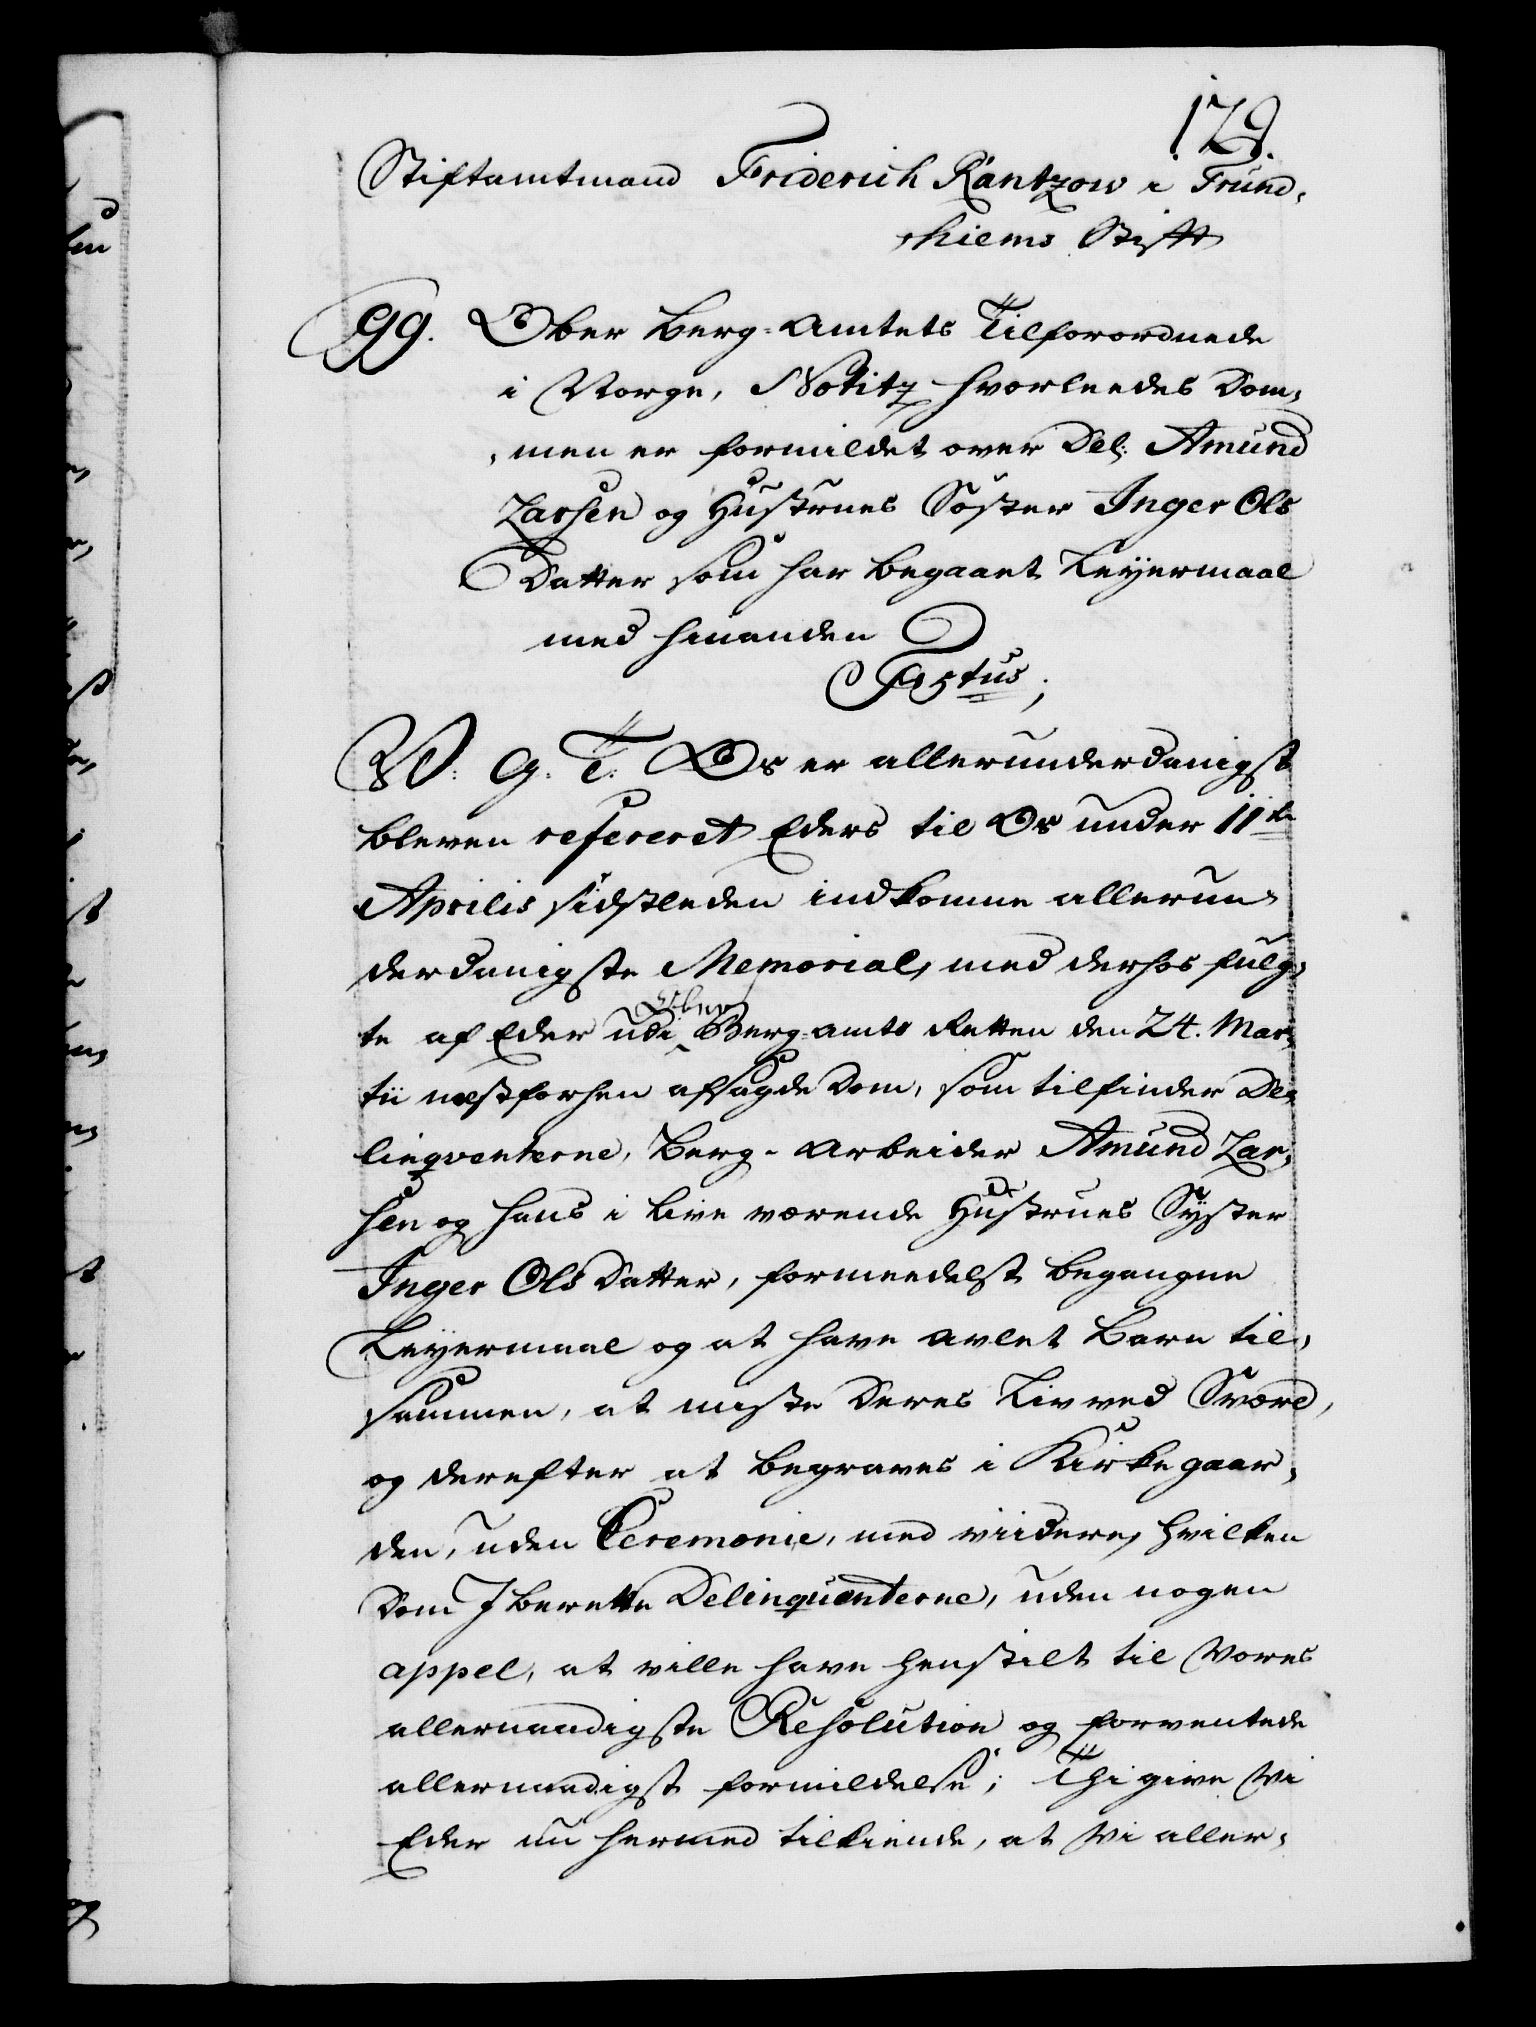 129.
Stiftamtmand Friderich Rantzow i Trund,
hiems Stift
99. Ober Berg-Amtets Tilforordnede
i Norge, Notitz hvorleedes Dom,
,men er formildet over Del: Amund
Larsen og Hustrues Søster Inger Ols
Datter som har begaaet Leyermaal
med hinanden
Festus;
W: G: T: Os er allerunderdanigst
bleven refereret Eders til Os under 11te
Aprilis sidstleden indkomne allerun,
derdanigste Memorial, med derhos fulg,
te af Eder udi Ober Berg-amts Retten den 24. Mar,
tii næstforhen afsagde Dom, som tilfinder De,
linqventerne, Berg-Arbeider Amund Lar,
sen og hans i live værende Hustrues Syster
Inger Ols Datter, formeedelst begangne
Leyermaal og at have avlet Barn til,
sammen, at miste deres Liv ved Sværd,
og derefter at begraves i Kirkegaar,
den, uden Ceremonie, med viidere, hvilken
Dom I berette Delinquenterne, uden nogen
appel, at ville have henstilt til Vores
allernaadigste Resolution og forventede
allernaadigst formildelse; Thi give Vi
Eder nu hermed tilkiende, at Vi aller,